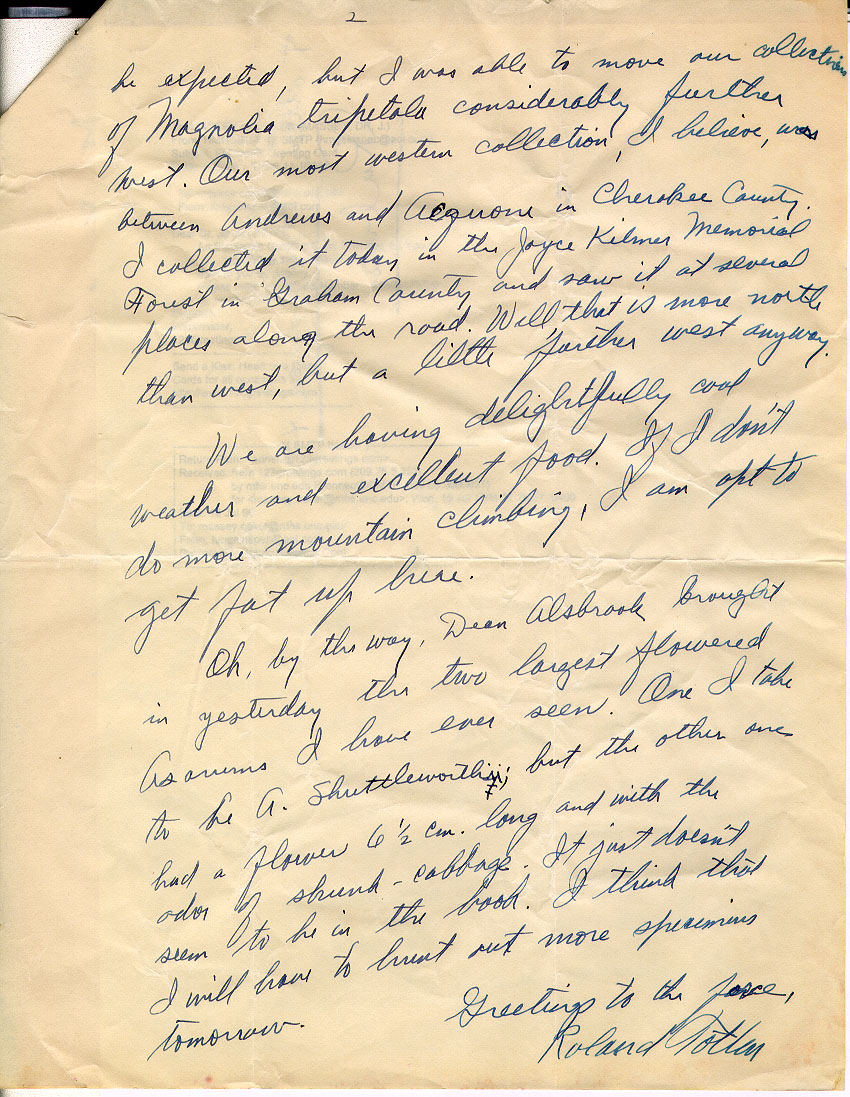 2
be expected, but I was able to move our collections
of Magnolia tripetala considerably further
west. Our most western collection, I believe, was
between Andrews and Acquone in Cherokee County.
I collected it today in the Joyce Kilmer Memorial
Forest in Graham County and saw it at several
places along the road. Well, that is more north
than west, but a little further west anyway.
We are having delightfully cool
weather and excellent food. If I don't
do more mountain climbing, I am apt to
get fat up here.
Oh, by the way, Dean Alsbrook brought
in yesterday the two largest flowered
Asarums I have ever seen. One I take
to be A. Shuttleworthii; but the other one
had a flower 6 1/2 cm. long and with the
odor of skunk-cabbage. It just doesn't
seem to be in the book. I think that
I will have to hunt out more specimens
tomorrow.
Greetings to the force,
Roland Totten